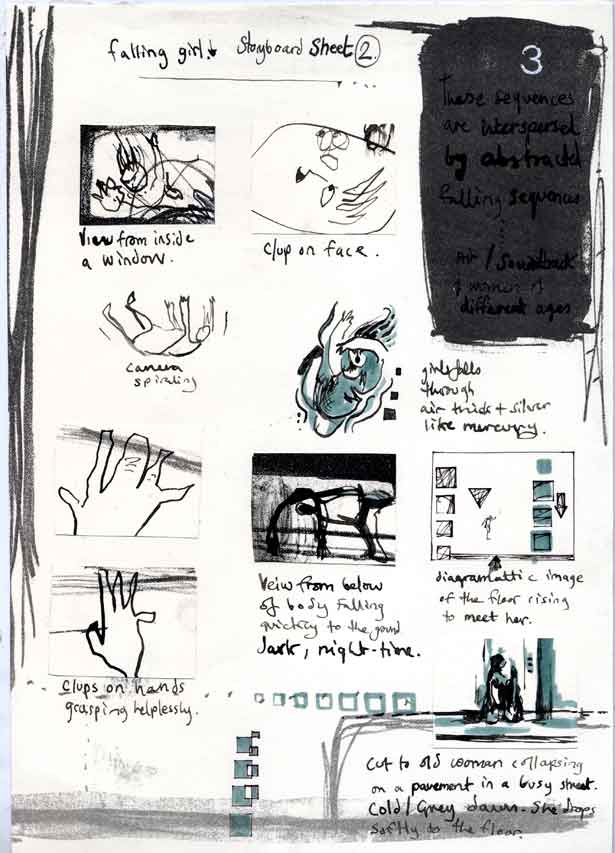 falling girl. Storyboard Sheet 2.
3
These sequences
are interspersed
by abstractd
falling sequences
Air / Soundtrack
of women of
different ages
View from inside
a window.
Clup on face.
camera
spiraling
girl falls
through
air thick + silver
like mercury.
Clups on hands
grasping helplessly.
Veiw from below
of body falling
quickly to the
Dark, night-time.
diagramattic image
of the floor rising
to meet her.
Cut to old woman collapsing
on a pavement in a busy street.
Cold/Grey dawn. She drops
softly to the floor.